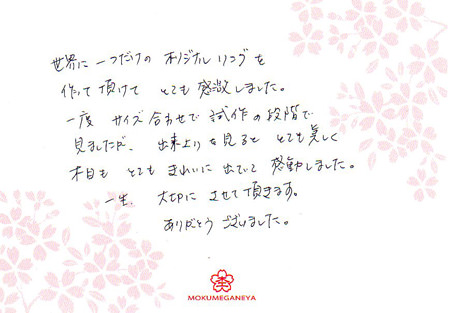 世界に一つだけのオリジナルリングを
作って頂けてとても感激しました。
一度サイズ合わせで試作の段階で
見ましたが、出来上りを見るととても美しく
木目もとてもきれいに出ていて感動しました。
一生、大切にさせて頂きます。
ありがとうございました。
MOKUMEGANEYA